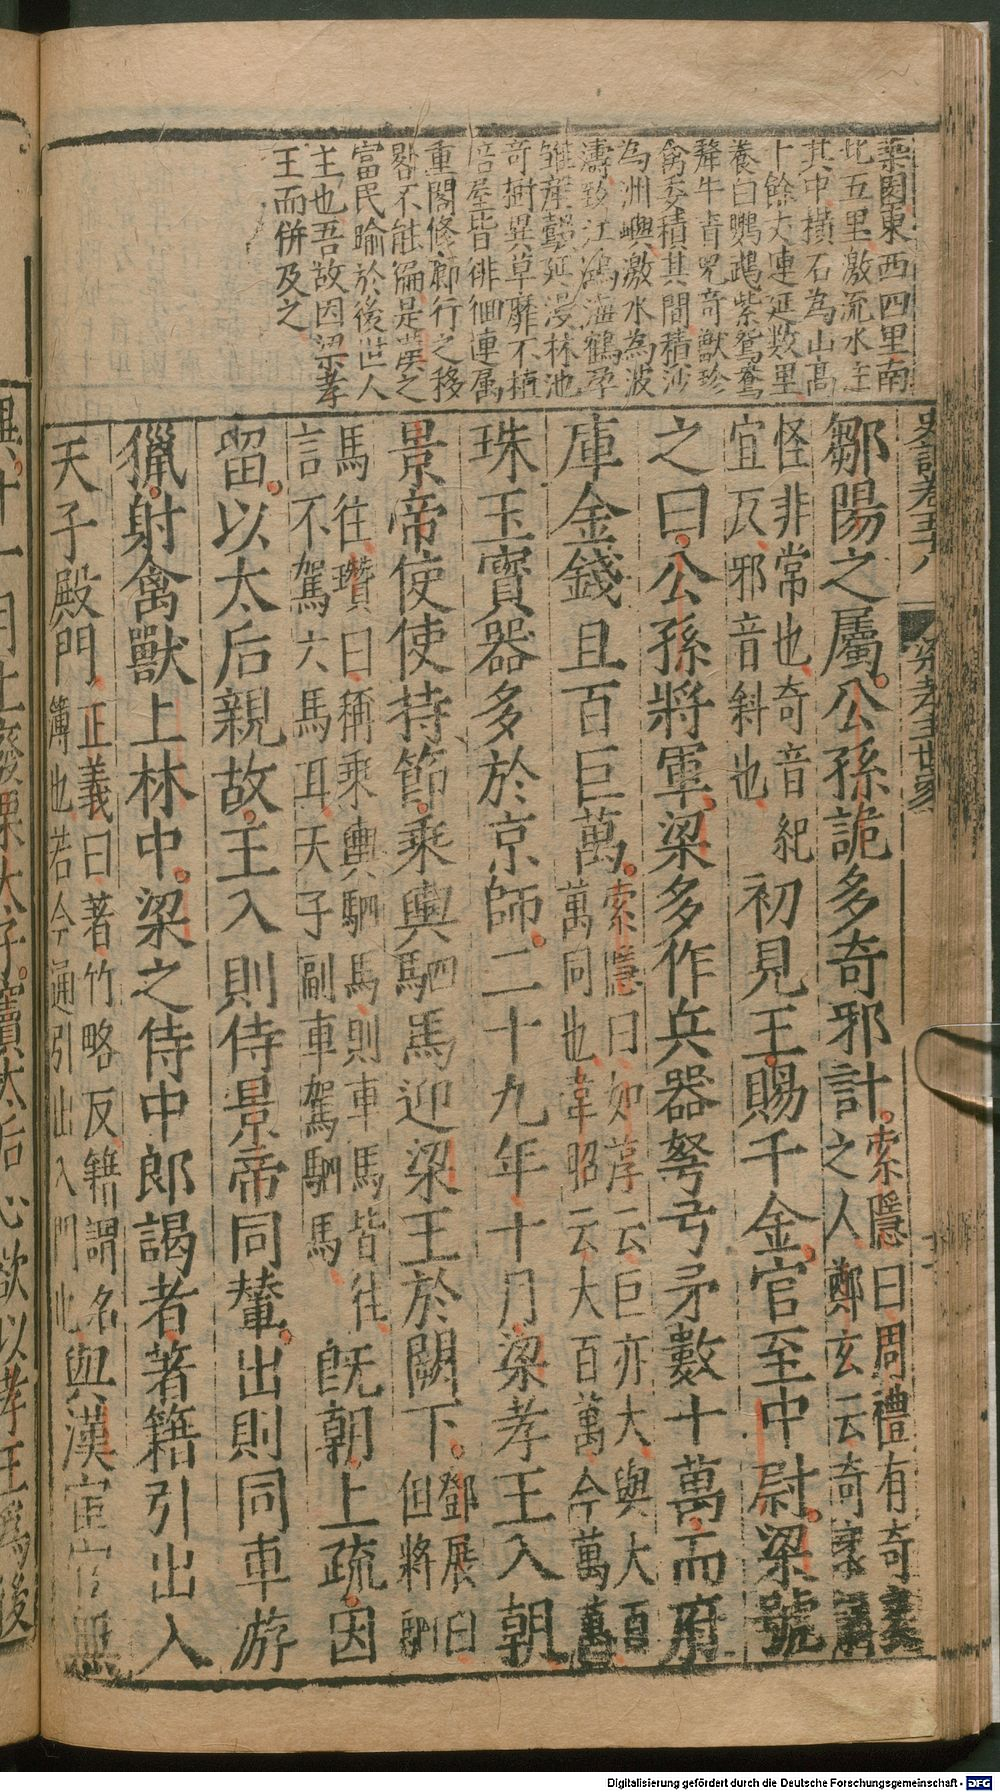 梁園東西四里南
北五里激流水注
其中橫石為山高
十餘丈連延数里
養白鸚鵡紫鴛鴦
犛牛青兕奇獸珍
禽委積其間積沙
為洲嶼激水為波
濤致江鷗海鶴孕
雛産鷇延漫林池
奇樹異草靡不植
培屋皆徘徊連属
重閣修廊行之移
晷不能徧是漢之
富民喻於後世人
主也吾故因梁孝
王而併及之
史記卷五十八 梁孝王世家
鄒陽之屬公孫詭多奇邪計之人
索隱曰周禮有奇
鄭玄云奇
怪非常也奇音紀
宜反邪音斜也
初見王賜千金官至中尉梁號
之曰公孫將軍梁多作兵器弩弓矛數十萬而府
庫金錢且百巨萬
索隱曰如淳云巨亦大與大百
萬同也韋昭云大百萬今萬萬
珠玉寳器多於京師二十九年十月梁孝王入朝
景帝使使持節乘輿駟馬迎梁王於闕下
鄧展曰
但將駟
馬往瓚曰稱乘輿駟馬則車馬皆往
言不駕六馬耳天子副車駕駟馬
旣朝上疏因
留以太后親故王入則侍景帝同輦出則同車游
獵射禽獸上林中梁之侍中郎謁者著籍引出入
天子殿門
正義曰著竹略反籍謂名
簿也若今通引出入門也
與漢宦官無